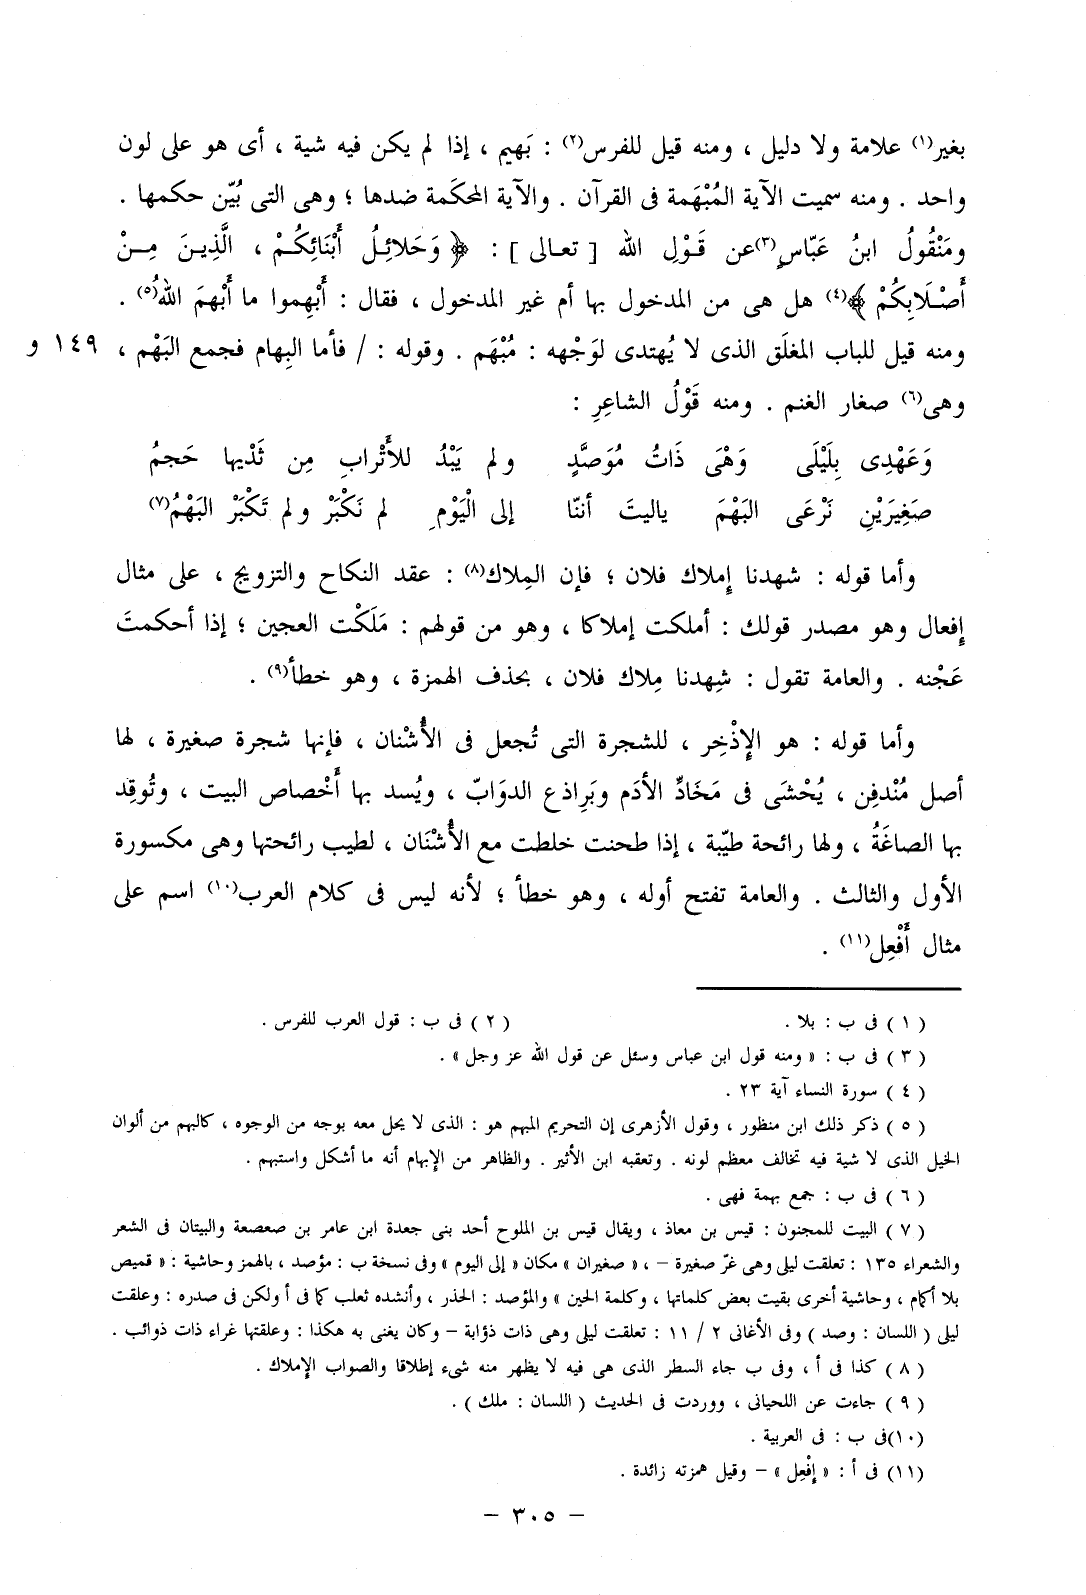 بغير(١) علامة ولا دليل ، ومنه قيل للفرس(٢) : بَهيم ، إذا لم يكن فيه شية ، أى هو على لون
واحد . ومنه سميت الآية المُبْهَمة فى القرآن . والآية المحكَمة ضدها ؛ وهى التى بُيّن حكمها .
ومَنْقُولُ ابنُ عَبّاسٍ(٣)عن قَوْلِ الله [ تعالى ] : ﴿ وَحَلائِلُ أَبْنَائِكُمْ ، الَّذِينَ مِنْ
أَصْلَابِكُمْ ﴾(٤) هل هى من المدخول بها أم غير المدخول ، فقال : أَبْهِموا ما أَبْهمَ اللهُ(٥) .
ومنه قيل للباب المغلَق الذى لا يُهتدى لوَجْهه : مُبْهَم . وقوله : / فأما البِهام فجمع البَهْم ، ١٤٩ و
وهى(٦) صغار الغنم . ومنه قَوْلُ الشاعِرِ :
وَعَهْدِى بِلَيْلَى وَهْىَ ذَاتُ مُوَصَّدٍ ولم يَبْدُ للأَتْرابِ مِن ثَدْيها حَجمُ
صَغِيَرَيْنِ نَرْعَى البَهْمَ ياليتَ أننّا إلى الْيَوْمِ لم نَكْبَرْ ولم تَكْبَرْ البَهْمُ(٧)
وأما قوله : شهدنا إِملاك فلان ؛ فإن المِلاك(٨) : عقد النكاح والتزويج ، على مثال
إِفعال وهو مصدر قولك : أملكت إملاكا ، وهو من قولهم : مَلَكْت العجين ؛ إذا أحكمتَ
عَجْنه . والعامة تقول : شِهدنا مِلاك فلان ، بحذف الهمزة ، وهو خطأ(٩) .
وأما قوله : هو الإِذْخِر ، للشجرة التى تُجعل فى الأُشْنان ، فإنها شجرة صغيرة ، لها
أصل مُنْدفِن ، يُحْشَى فى مَخَادِّ الأدَم وبَراذع الدوَابّ ، ويُسد بها أَخْصاص البيت ، وتُوقِد
بها الصاغَةُ ، ولها رائحة طيّبة ، إذا طحنت خلطت مع الأُشْنَان ، لطيب رائحتها وهى مكسورة
الأول والثالث . والعامة تفتح أوله ، وهو خطأ ؛ لأنه ليس فى كلام العرب(١٠) اسم على
مثال أَفْعِل(١١) .
( ١ ) فى ب : بلا . ( ٢ ) فى ب : قول العرب للفرس .
( ٣ ) فى ب : « ومنه قول ابن عباس وسئل عن قول الله عز وجل » .
( ٤ ) سورة النساء آية ٢٣ .
( ٥ ) ذكر ذلك ابن منظور ، وقول الأزهرى إن التحريم المبهم هو : الذى لا يحل معه بوجه من الوجوه ، كالبهم من ألوان
الخيل الذى لا شية فيه تخالف معظم لونه . وتعقبه ابن الأثير . والظاهر من الإبهام أنه ما أشكل واستبهم .
( ٦ ) فى ب : جمع بهمة فهى .
( ٧ ) البيت للمجنون : قيس بن معاذ ، ويقال قيس بن الملوح أحد بنى جعدة ابن عامر بن صعصعة والبيتان فى الشعر
والشعراء ١٣٥ : تعلقت ليلى وهى غرّ صغيرة – ، « صغيران » مكان « إلى اليوم » وفى نسخة ب : مؤصد ، بالهمز وحاشية : « قميص
بلا أكمام ، وحاشية أخرى بقيت بعض كلماتها ، وكلمة الحين » والمؤصد : الخدر ، وأنشده ثعلب كما فى أ ولكن فى صدره : وعلقت
ليلى ( اللسان : وصد ) وفى الأغانى ٢ / ١١ : تعلقت ليلى وهى ذات ذؤابة – وكان يغنى به هكذا : وعلقتها غراء ذات ذوائب .
( ٨ ) كذا فى أ ، وفى ب جاء السطر الذى هى فيه لا يظهر منه شىء إطلاقا والصواب الإملاك .
( ٩ ) جاءت عن اللحيانى ، ووردت فى الحديث ( اللسان : ملك ) .
(١٠)فى ب : فى العربية .
(١١) فى أ : « إفْعِل » – وقيل همزته زائدة .
– ٣٠٥ –